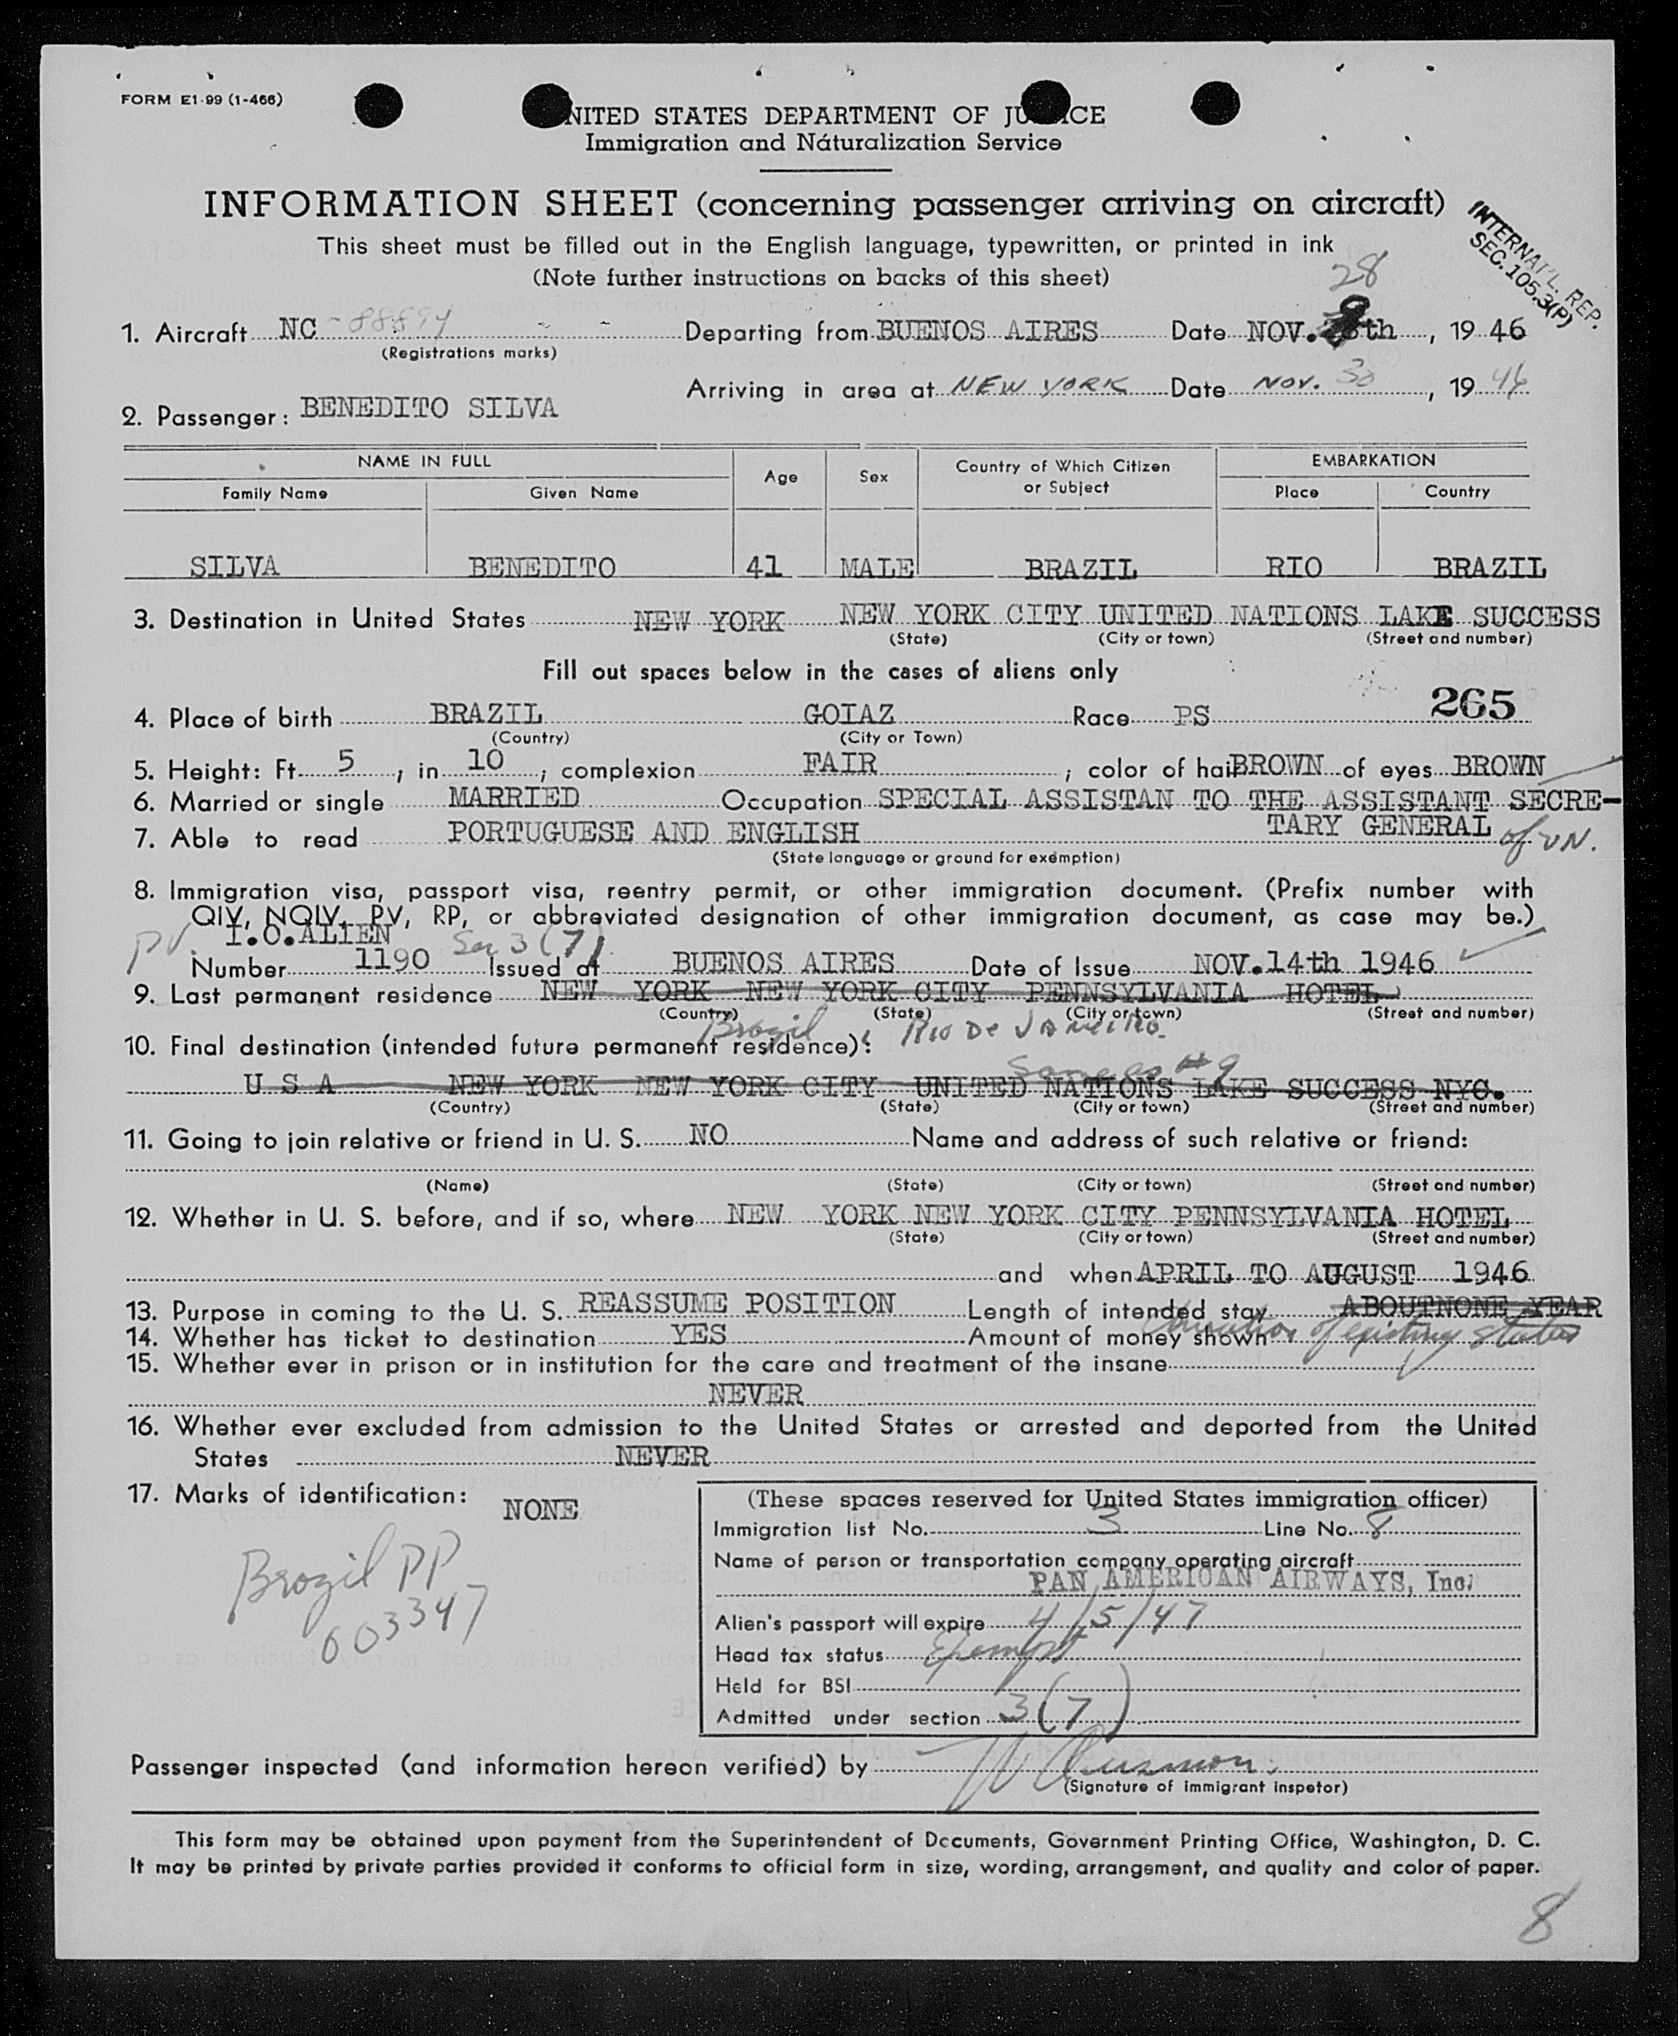 FORM E1-99 (1-466)
UNITED STATES DEPARTMENT OF JUSTICE
Immigration and Naturalization Service
INFORMATION SHEET (concerning passenger arriving on aircraft)
INTERNAT'L. REP.
SEC. 105.3(P)
This sheet must be filled out in the English language, typewritten, or printed in ink
(Note further instructions on backs of this sheet)
28
1. Aircraft NC -88894 Departing from BUENOS AIRES Date NOV. th, 19 46
(Registrations marks)
Arriving in area at NEW YORK Date NOV. 30, 19 46
2. Passenger: BENEDITO SILVA
NAME IN FULL Age Sex Country of Which Citizen or Subject EMBARKATION
Family Name Given Name Place Country
SILVA BENEDITO 41 MALE BRAZIL RIO BRAZIL
3. Destination in United States NEW YORK NEW YORK CITY UNITED NATIONS LAKE SUCCESS
(State) (City or town) (Street and number)
Fill out spaces below in the cases of aliens only
4. Place of birth BRAZIL GOIAZ Race PS 265
(Country) (City or Town)
5. Height: Ft. 5, in 10; complexion FAIR; color of hair BROWN of eyes BROWN
6. Married or single MARRIED Occupation SPECIAL ASSISTAN TO THE ASSISTANT SECRE-
TARY GENERAL of UN.
7. Able to read PORTUGUESE AND ENGLISH
(State language or ground for exemption)
8. Immigration visa, passport visa, reentry permit, or other immigration document. (Prefix number with
QIV, NQIV, PV, RP, or abbreviated designation of other immigration document, as case may be.)
PV. I.O.ALIEN
Number 1190 Sec 3 (7) Issued at BUENOS AIRES Date of Issue NOV.14th 1946
9. Last permanent residence NEW YORK NEW YORK CITY PENNSYLVANIA HOTEL
(Country) (State) (City or town) (Street and number)
Brazil, Rio De Janeiro.
10. Final destination (intended future permanent residence):
Same as #9
U S A NEW YORK NEW YORK CITY UNITED NATIONS LAKE SUCCESS NYC.
(Country) (State) (City or town) (Street and number)
11. Going to join relative or friend in U. S. NO Name and address of such relative or friend:
(Name) (State) (City or town) (Street and number)
12. Whether in U. S. before, and if so, where NEW YORK NEW YORK CITY PENNSYLVANIA HOTEL
(State) (City or town) (Street and number)
and when APRIL TO AUGUST 1946
13. Purpose in coming to the U. S. REASSUME POSITION Length of intended stay ABOUTNONE YEAR
Duration of existing status
14. Whether has ticket to destination YES Amount of money shown
15. Whether ever in prison or in institution for the care and treatment of the insane
NEVER
16. Whether ever excluded from admission to the United States or arrested and deported from the United
States NEVER
17. Marks of identification: NONE
Brazil PP
003347
(These spaces reserved for United States immigration officer)
Immigration list No. 3 Line No. 8
Name of person or transportation company operating aircraft
PAN AMERICAN AIRWAYS, Inc.
Alien's passport will expire 4/5/47
Head tax status Exempt
Held for BSI
Admitted under section 3(7)
Passenger inspected (and information hereon verified) by
(Signature of immigrant inspetor)
This form may be obtained upon payment from the Superintendent of Documents, Government Printing Office, Washington, D. C.
It may be printed by private parties provided it conforms to official form in size, wording, arrangement, and quality and color of paper.
8